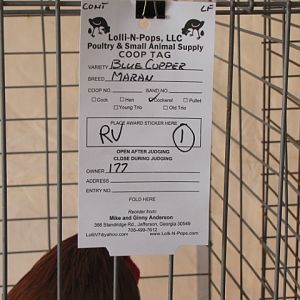 CONT CF
Lolli-N-Pops, LLC
Poultry & Small Animal Supply
COOP TAG
VARIETY BLUE COPPER
BREED MARAN
COOP NO. BAND NO.
Cock Hen Cockerel Pullet
Young Trio Old Trio
PLACE AWARD STICKER HERE
RV 1
OPEN AFTER JUDGING
CLOSE DURING JUDGING
OWNER 177
ADDRESS
ENTRY NO.
FOLD HERE
Reorder from:
Mike and Ginny Anderson
388 Standridge Rd., Jefferson, Georgia 30549
706-499-7612
www.Lolli-N-Pops.com